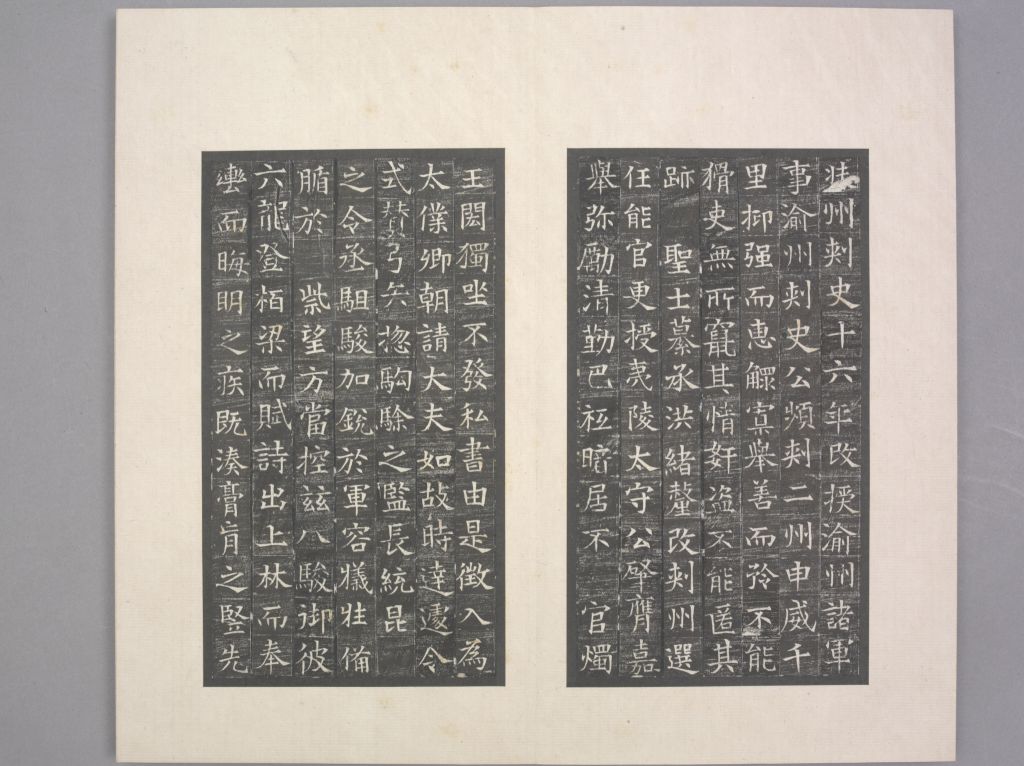 州刾史十六年改授渝州諸軍
事渝州刾史公頻刾二州申威千
里抑强而惠鰥寡舉善而矜不能
猾吏無所竄其情姧盗不能匿其
跡 聖士纂丞洪緒釐改刾州選
任能官更授夷陵太守公肇膺嘉
舉弥勵清勤巴祗暗居不 官燭
王閎獨坐不發私書由是徵入為
太僕卿朝請大夫如故時達遽令
式賛弓矢揔駒騟之監長統昆
之令丞駔駿加鋭於軍容犧牲備
腯於 祡望方當控兹八駿御彼
六龍登栢梁而賦詩出上林而奉
轡而晦明之疾既湊膏肓之豎先